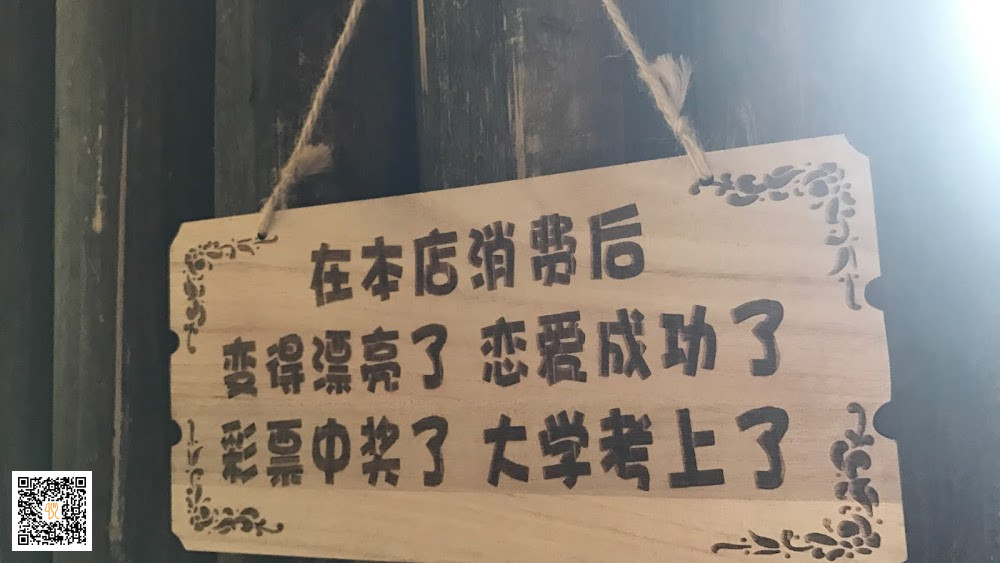 在本店消费后
变得漂亮了 恋爱成功了
彩票中奖了 大学考上了